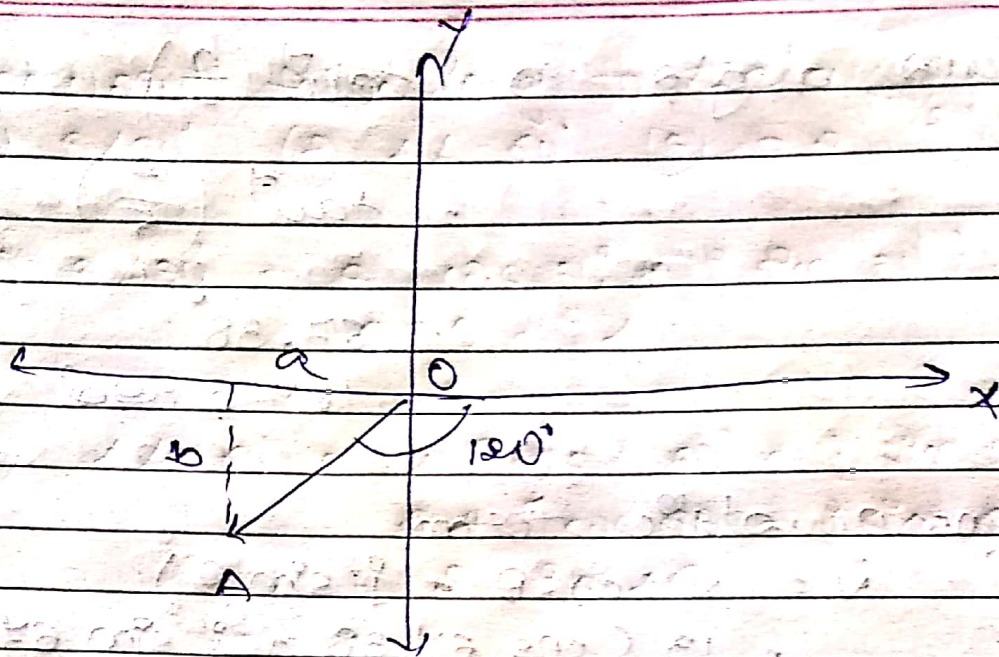 Y
a
O
X
b
120°
A